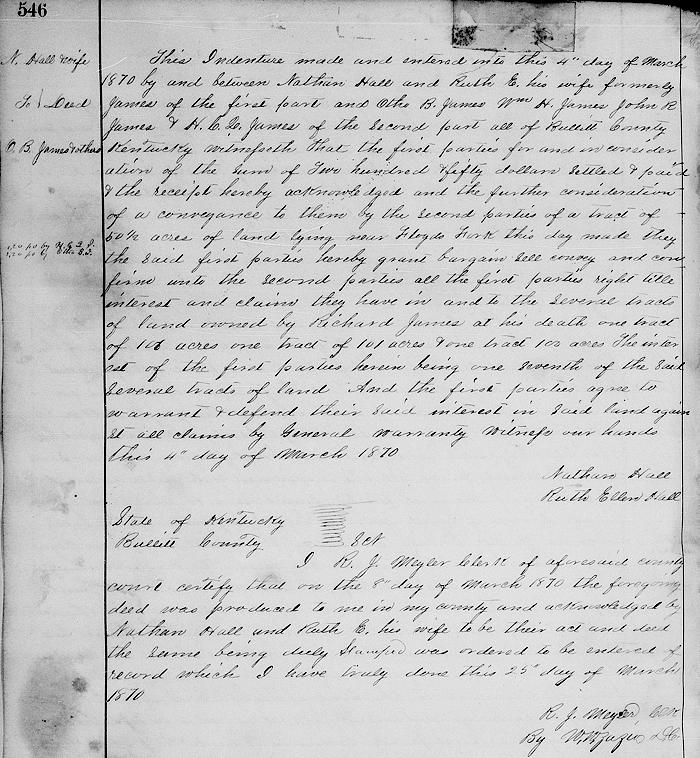 546
N. Hall & wife
To } Deed
O. B. James & others
This Indenture made and entered into this 4" day of March
1870 by and between Nathan Hall and Ruth E. his wife formerly
James of the first part and Otho B. James Wm H. James John R
James & H. C. L. James of the second part all of Bullitt County
Kentucky witnesseth That the first parties for and in consider
ation of the sum of Two hundred & fifty dollars settled & paid
& the receipt hereby acknowledged and the further consideration
of a conveyance to them by the second parties of a tract of
50½ acres of land lying near Floyds Fork this day made they
the said first parties hereby grant bargain sell convey and con
firm unto the second parties all the first parties right title
interest and claim they have in and to the several tracts
of land owned by Richard James at his death one tract
of 106 acres one tract of 101 acres & one tract 100 acres The inter
est of the first parties herein being one seventh of the said
several tracts of land And the first parties agree to
warrant & defend their said interest in said land again
st all claims by General Warranty Witness our hands
this 4" day of March 1870
Nathan Hall
Ruth Ellen Hall
State of Kentucky
Bullitt County Sct
I R. J. Meyler Clerk of aforesaid county
court certify that on the 8" day of March 1870 the foregoing
deed was produced to me in my county and acknowledged by
Nathan Hall and Ruth E. his wife to be their act and deed
the same being duly Stamped was ordered to be entered of
record which I have truly done this 25" day of March
1870
R. J. Meyler, Clk
By D.C.